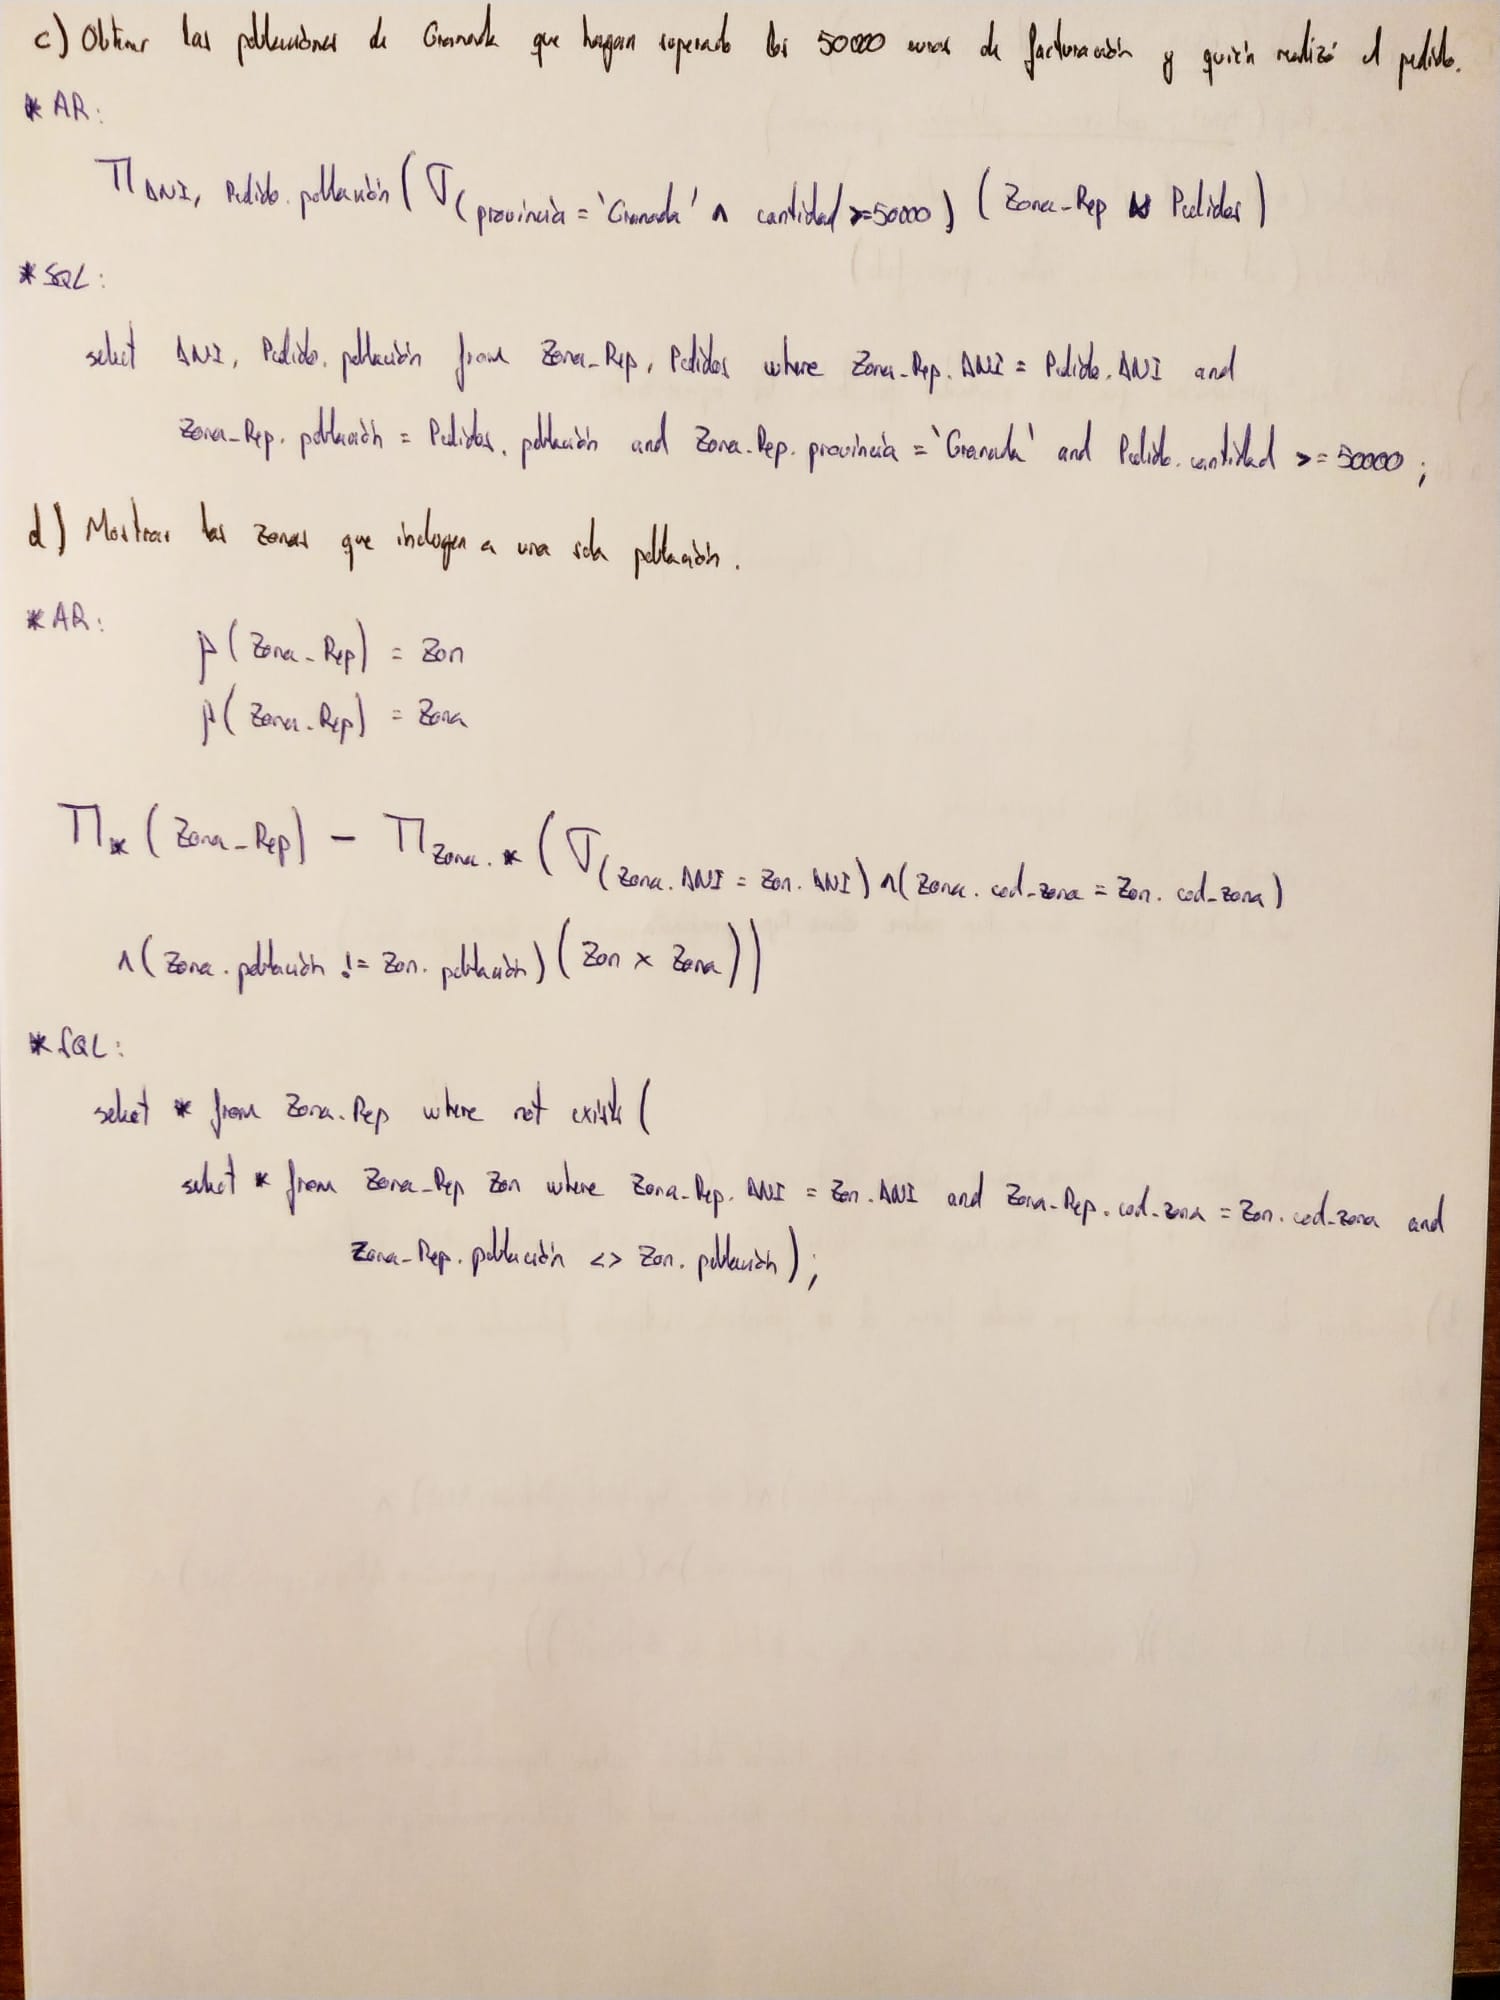 c) Obtener las poblaciones de Granada que hayan superado los 50000 euros de facturación y quién realizó el pedido.
* AR:
Π DNI, Pedido.población (σ (provincia = 'Granada' ∧ cantidad >= 50000) (Zona_Rep ⋈ Pedidos)
* SQL:
select DNI, Pedido.población from Zona_Rep, Pedidos where Zona_Rep.DNI = Pedido.DNI and
Zona_Rep.población = Pedidos.población and Zona_Rep.provincia = 'Granada' and Pedido.cantidad >= 50000;
d) Mostrar las zonas que incluyen a una sola población.
* AR:
ρ(Zona_Rep) = Zon
ρ(Zona_Rep) = Zona
Π * (Zona_Rep) - Π Zona.* (σ (Zona.DNI = Zon.DNI) ∧ (Zona.cod_zona = Zon.cod_zona)
∧ (Zona.población != Zon.población) (Zon x Zona))
* SQL:
select * from Zona_Rep where not exists (
select * from Zona_Rep Zon where Zona_Rep.DNI = Zon.DNI and Zona_Rep.cod_zona = Zon.cod_zona and
Zona_Rep.población <> Zon.población);